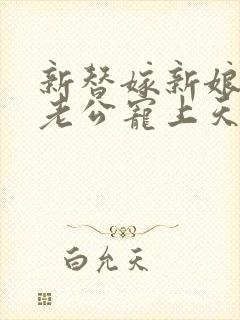 新替嫁新娘
老公宠上天
白允天